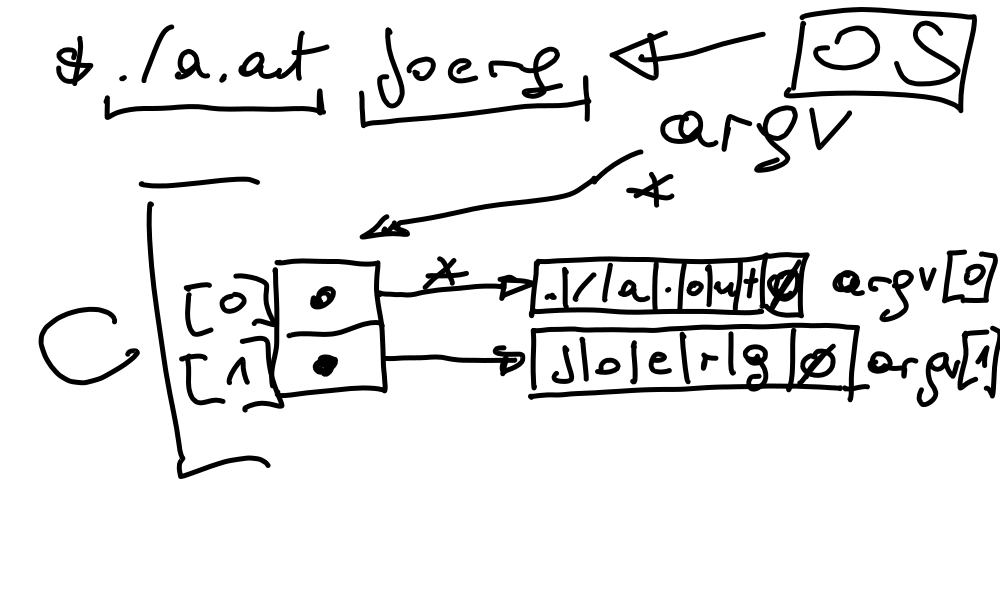 $ ./a.out joerg OS
argv
*
C [0] * ./a.out∅ argv[0]
[1] joerg∅ argv[1]